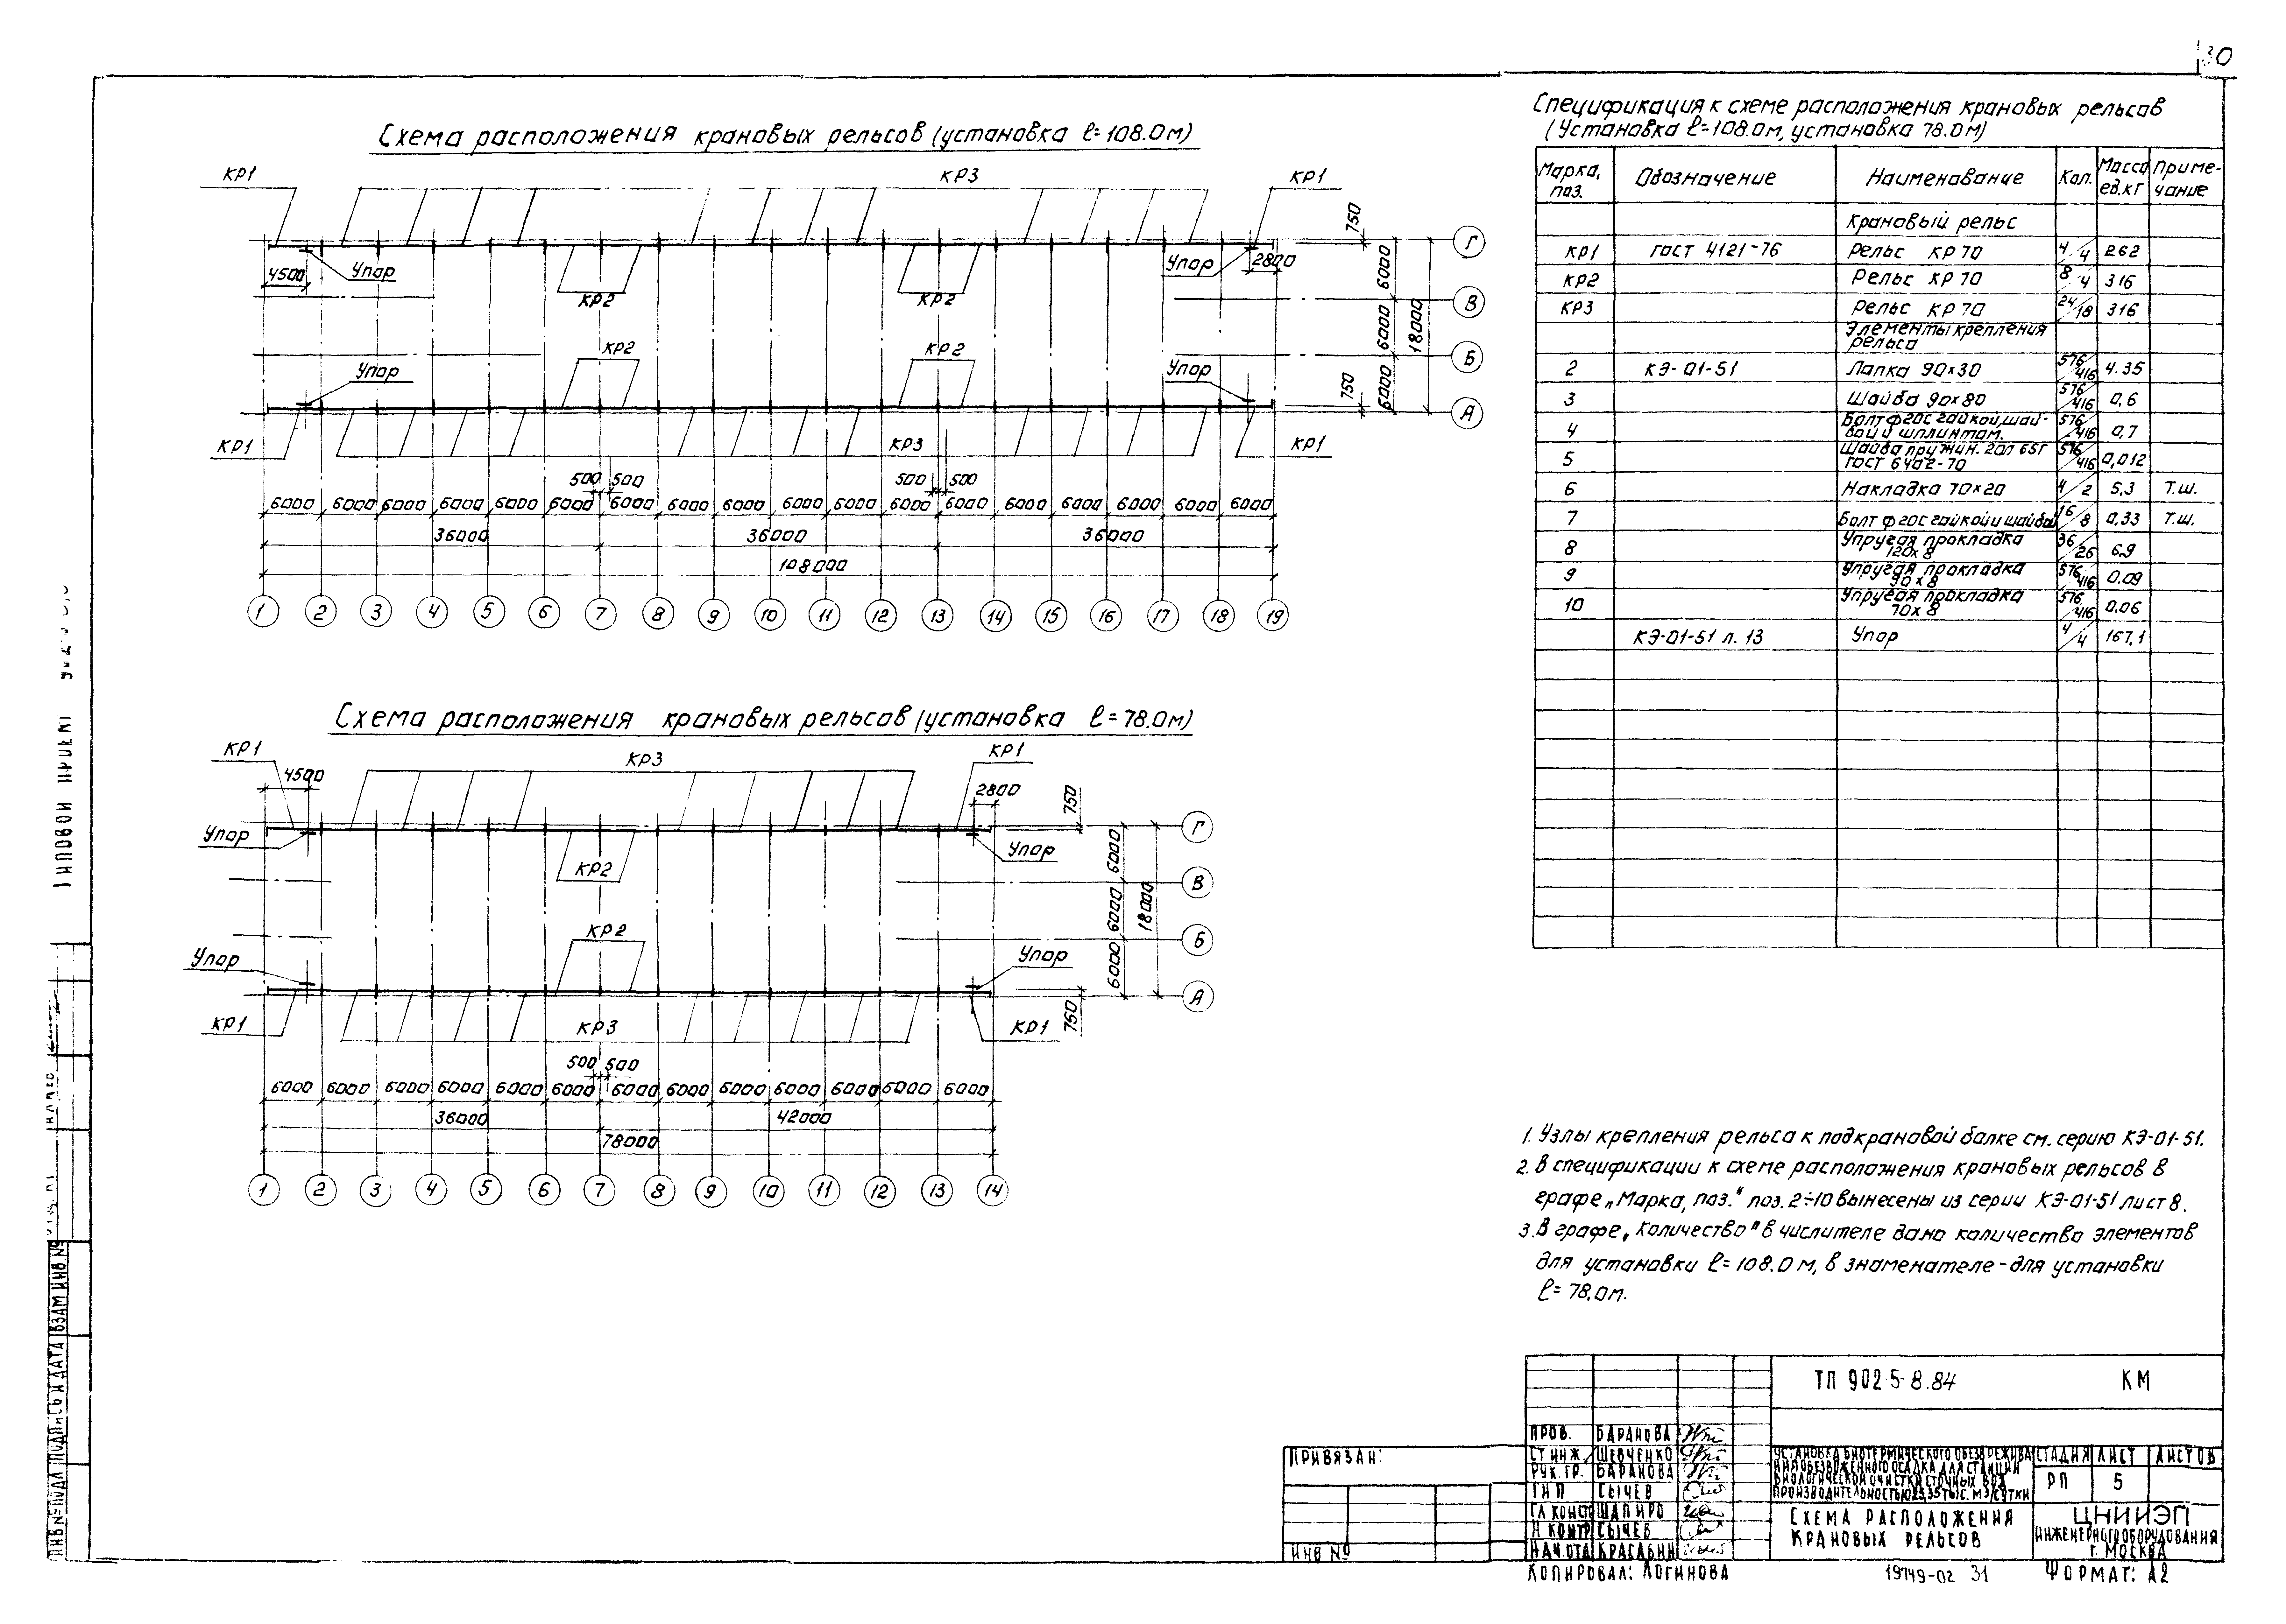 30
Схема расположения крановых рельсов (установка ℓ=108.0м)
КР1 КР3 КР1
4500 Упор КР2 КР2 Упор 2800 750 Г
6000 В
6000 18000 Б
Упор КР2 КР2 Упор 750 6000 А
КР1 КР3 КР1
500 500 500 500
6000 6000 6000 6000 6000 6000 6000 6000 6000 6000 6000 6000 6000 6000 6000 6000 6000 6000
36000 36000 36000
108000
1 2 3 4 5 6 7 8 9 10 11 12 13 14 15 16 17 18 19
Схема расположения крановых рельсов (установка ℓ=78.0м)
КР1 КР3 КР1
4500 2800 750
Упор КР2 Упор Г
6000 В
6000 18000 Б
Упор КР2 Упор 6000 А
КР1 КР3 КР1 750
500 500
6000 6000 6000 6000 6000 6000 6000 6000 6000 6000 6000 6000 6000
36000 42000
78000
1 2 3 4 5 6 7 8 9 10 11 12 13 14
Спецификация к схеме расположения крановых рельсов
(Установка ℓ=108.0м, установка 78.0м)
Марка, поз. Обозначение Наименование Кол. Масса ед.кг Приме-чание
Крановый рельс
КР1 ГОСТ 4121-76 Рельс КР70 4/4 262
КР2 Рельс КР70 8/4 316
КР3 Рельс КР70 24/18 316
Элементы крепления
рельса
2 КЭ-01-51 Лапка 90х30 576/416 4.35
3 Шайба 90х80 576/416 0,6
4 Болт ф20 с гайкой, шай-
бой и шплинтом. 576/416 0,7
5 Шайба пружин. 20Л 65Г
ГОСТ 6402-70 576/416 0,012
6 Накладка 70х20 4/2 5,3 Т.Ш.
7 Болт ф20 с гайкой и шайбой 16/8 0,33 Т.Ш.
8 Упругая прокладка
120х8 36/26 6,9
9 Упругая прокладка
90х8 576/416 0.09
10 Упругая прокладка
70х8 576/416 0,06
КЭ-01-51 л. 13 Упор 4/4 167,1
1. Узлы крепления рельса к подкрановой балке см. серию КЭ-01-51.
2. В спецификации к схеме расположения крановых рельсов в
графе „Марка, поз." поз. 2÷10 вынесены из серии КЭ-01-51 лист 8.
3. В графе „Количество" в числителе дано количество элементов
для установки ℓ=108.0м, в знаменателе-для установки
ℓ=78,0м.
ТП 902-5-8.84 КМ
ПРОВ. БАРАНОВА
СТ ИНЖ. ШЕВЧЕНКО
РУК. ГР. БАРАНОВА
ГИП СЫЧЕВ
ГЛ КОНСТ ШАПИРО
Н КОНТР СЫЧЕВ
НАЧ.ОТД КРАСАВИН
УСТАНОВКА БИОТЕРМИЧЕСКОГО ОБЕЗВРЕЖИВА
НИЯ ОБЕЗВОЖЕННОГО ОСАДКА ДЛЯ СТАНЦИЙ
БИОЛОГИЧЕСКОЙ ОЧИСТКИ СТОЧНЫХ ВОД
ПРОИЗВОДИТЕЛЬНОСТЬЮ 25,35 ТЫС. М3/СУТКИ
СТАДИЯ ЛИСТ ЛИСТОВ
РП 5
СХЕМА РАСПОЛОЖЕНИЯ
КРАНОВЫХ РЕЛЬСОВ
ЦНИИЭП
ИНЖЕНЕРНОГО ОБОРУДОВАНИЯ
Г. МОСКВА
ПРИВЯЗАН:
ИНВ №
КОПИРОВАЛ: ЛОГИНОВА 19749-02 31 ФОРМАТ: А2
ТИПОВОЙ ПРОЕКТ
ИНВ № ПОДЛ ПОДПИСЬ И ДАТА ВЗАМ ИНВ №